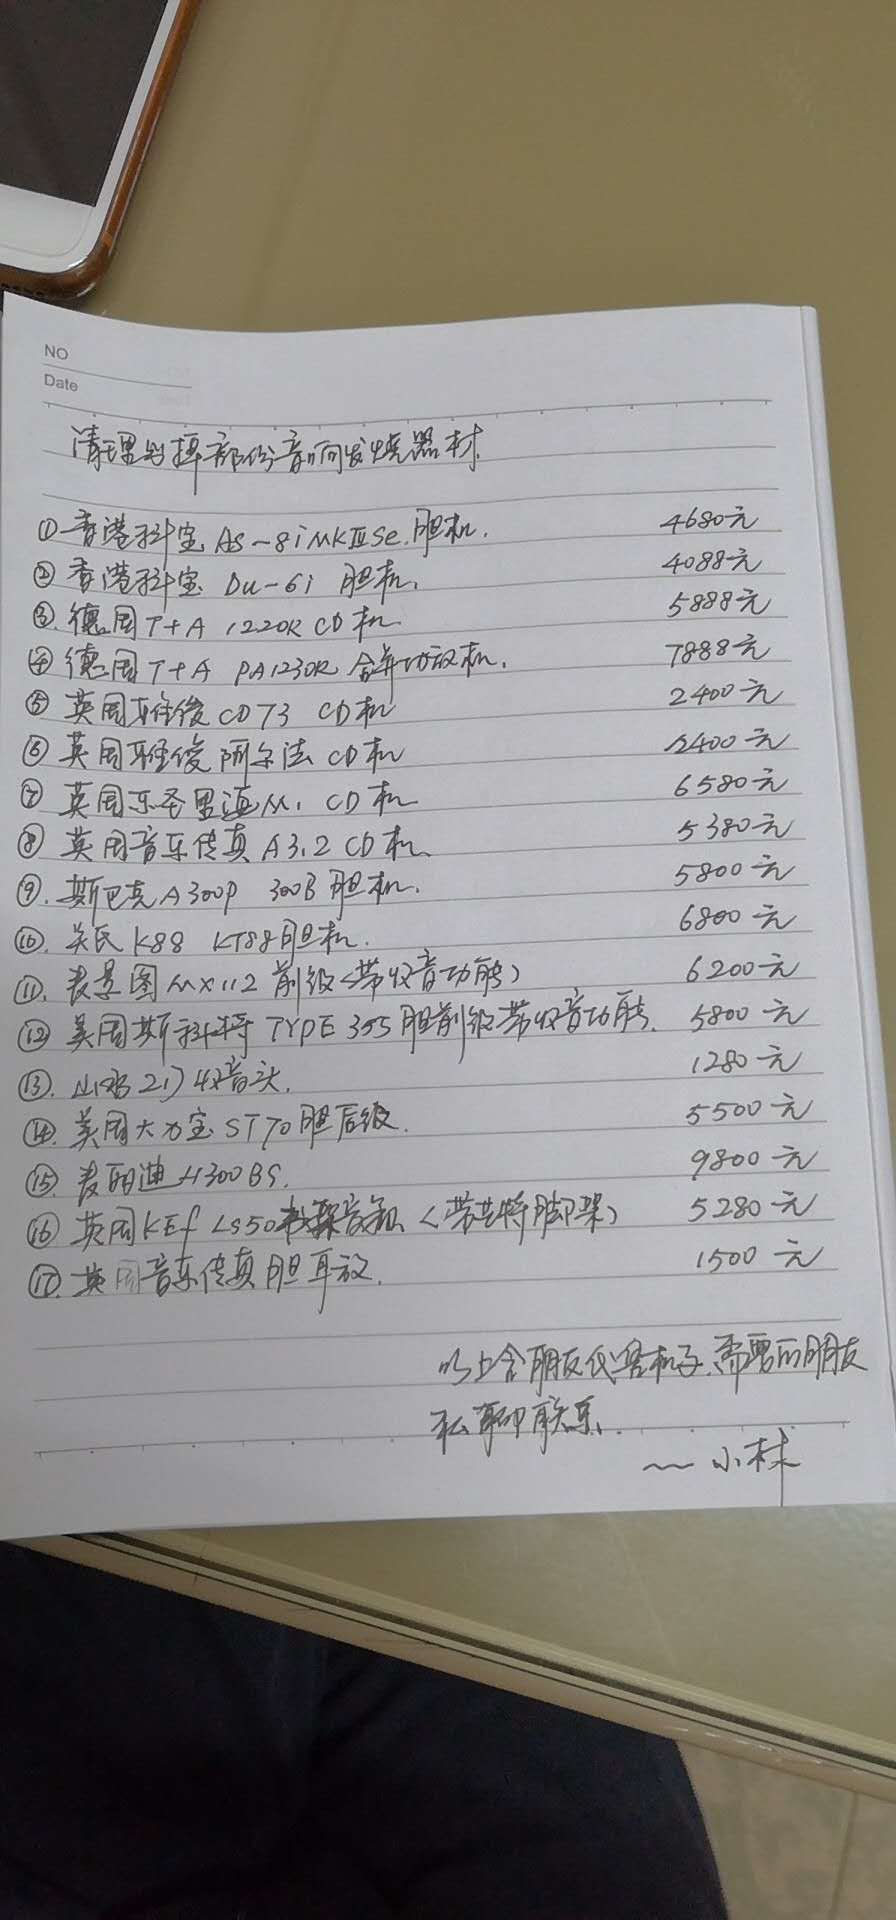 NO
Date
清理出掉部份音响发烧器材
① 香港科宝 AS-8i MKII Se 胆机. 4680元
② 香港科宝 Du-6i 胆机. 4088元
③. 德国 T+A 1220R CD机 5888元
④ 德国 T+A PA1230R 合并功放机. 7888元
⑤ 英国雅俊 CD73 CD机 2400元
⑥ 英国雅俊阿尔法 CD机 2400元
⑦ 英国乐圣里海M1 CD机 6580元
⑧ 英国音乐传真 A3.2 CD机. 5380元
⑨. 斯巴克 A300P 300B 胆机. 5800元
⑩. 关氏 K88 KT88胆机. 6800元
⑪. 麦景图 MX112 前级(带收音功能) 6200元
⑫ 美国斯科特 TYPE 355 胆前级带收音功能. 5800元
⑬. 山水 217 收音头. 1280元
⑭. 美国大力宝 ST70 胆后级. 5500元
⑮. 麦丽迪 H300BS. 9800元
⑯ 英国KEF LS50书架音箱 (带兰特脚架) 5280元
⑰. 英国音乐传真胆耳放. 1500元
以上含朋友代售机子.需要的朋友
私聊联系.
~~小林